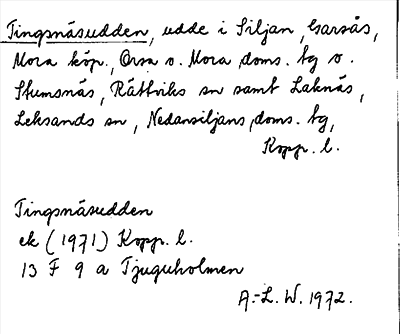 Tingsnäsudden, udde i Siljan, Garsås,
Mora köp., Orsa o. Mora doms. tg o.
Stumsnäs, Rättviks sn samt Laknäs,
Leksands sn, Nedansiljans doms. tg,
Kopp. l.
Tingsnäsudden
ek (1971) Kopp. l.
13 F 9 a Tjuguholmen
A.-L. W. 1972.